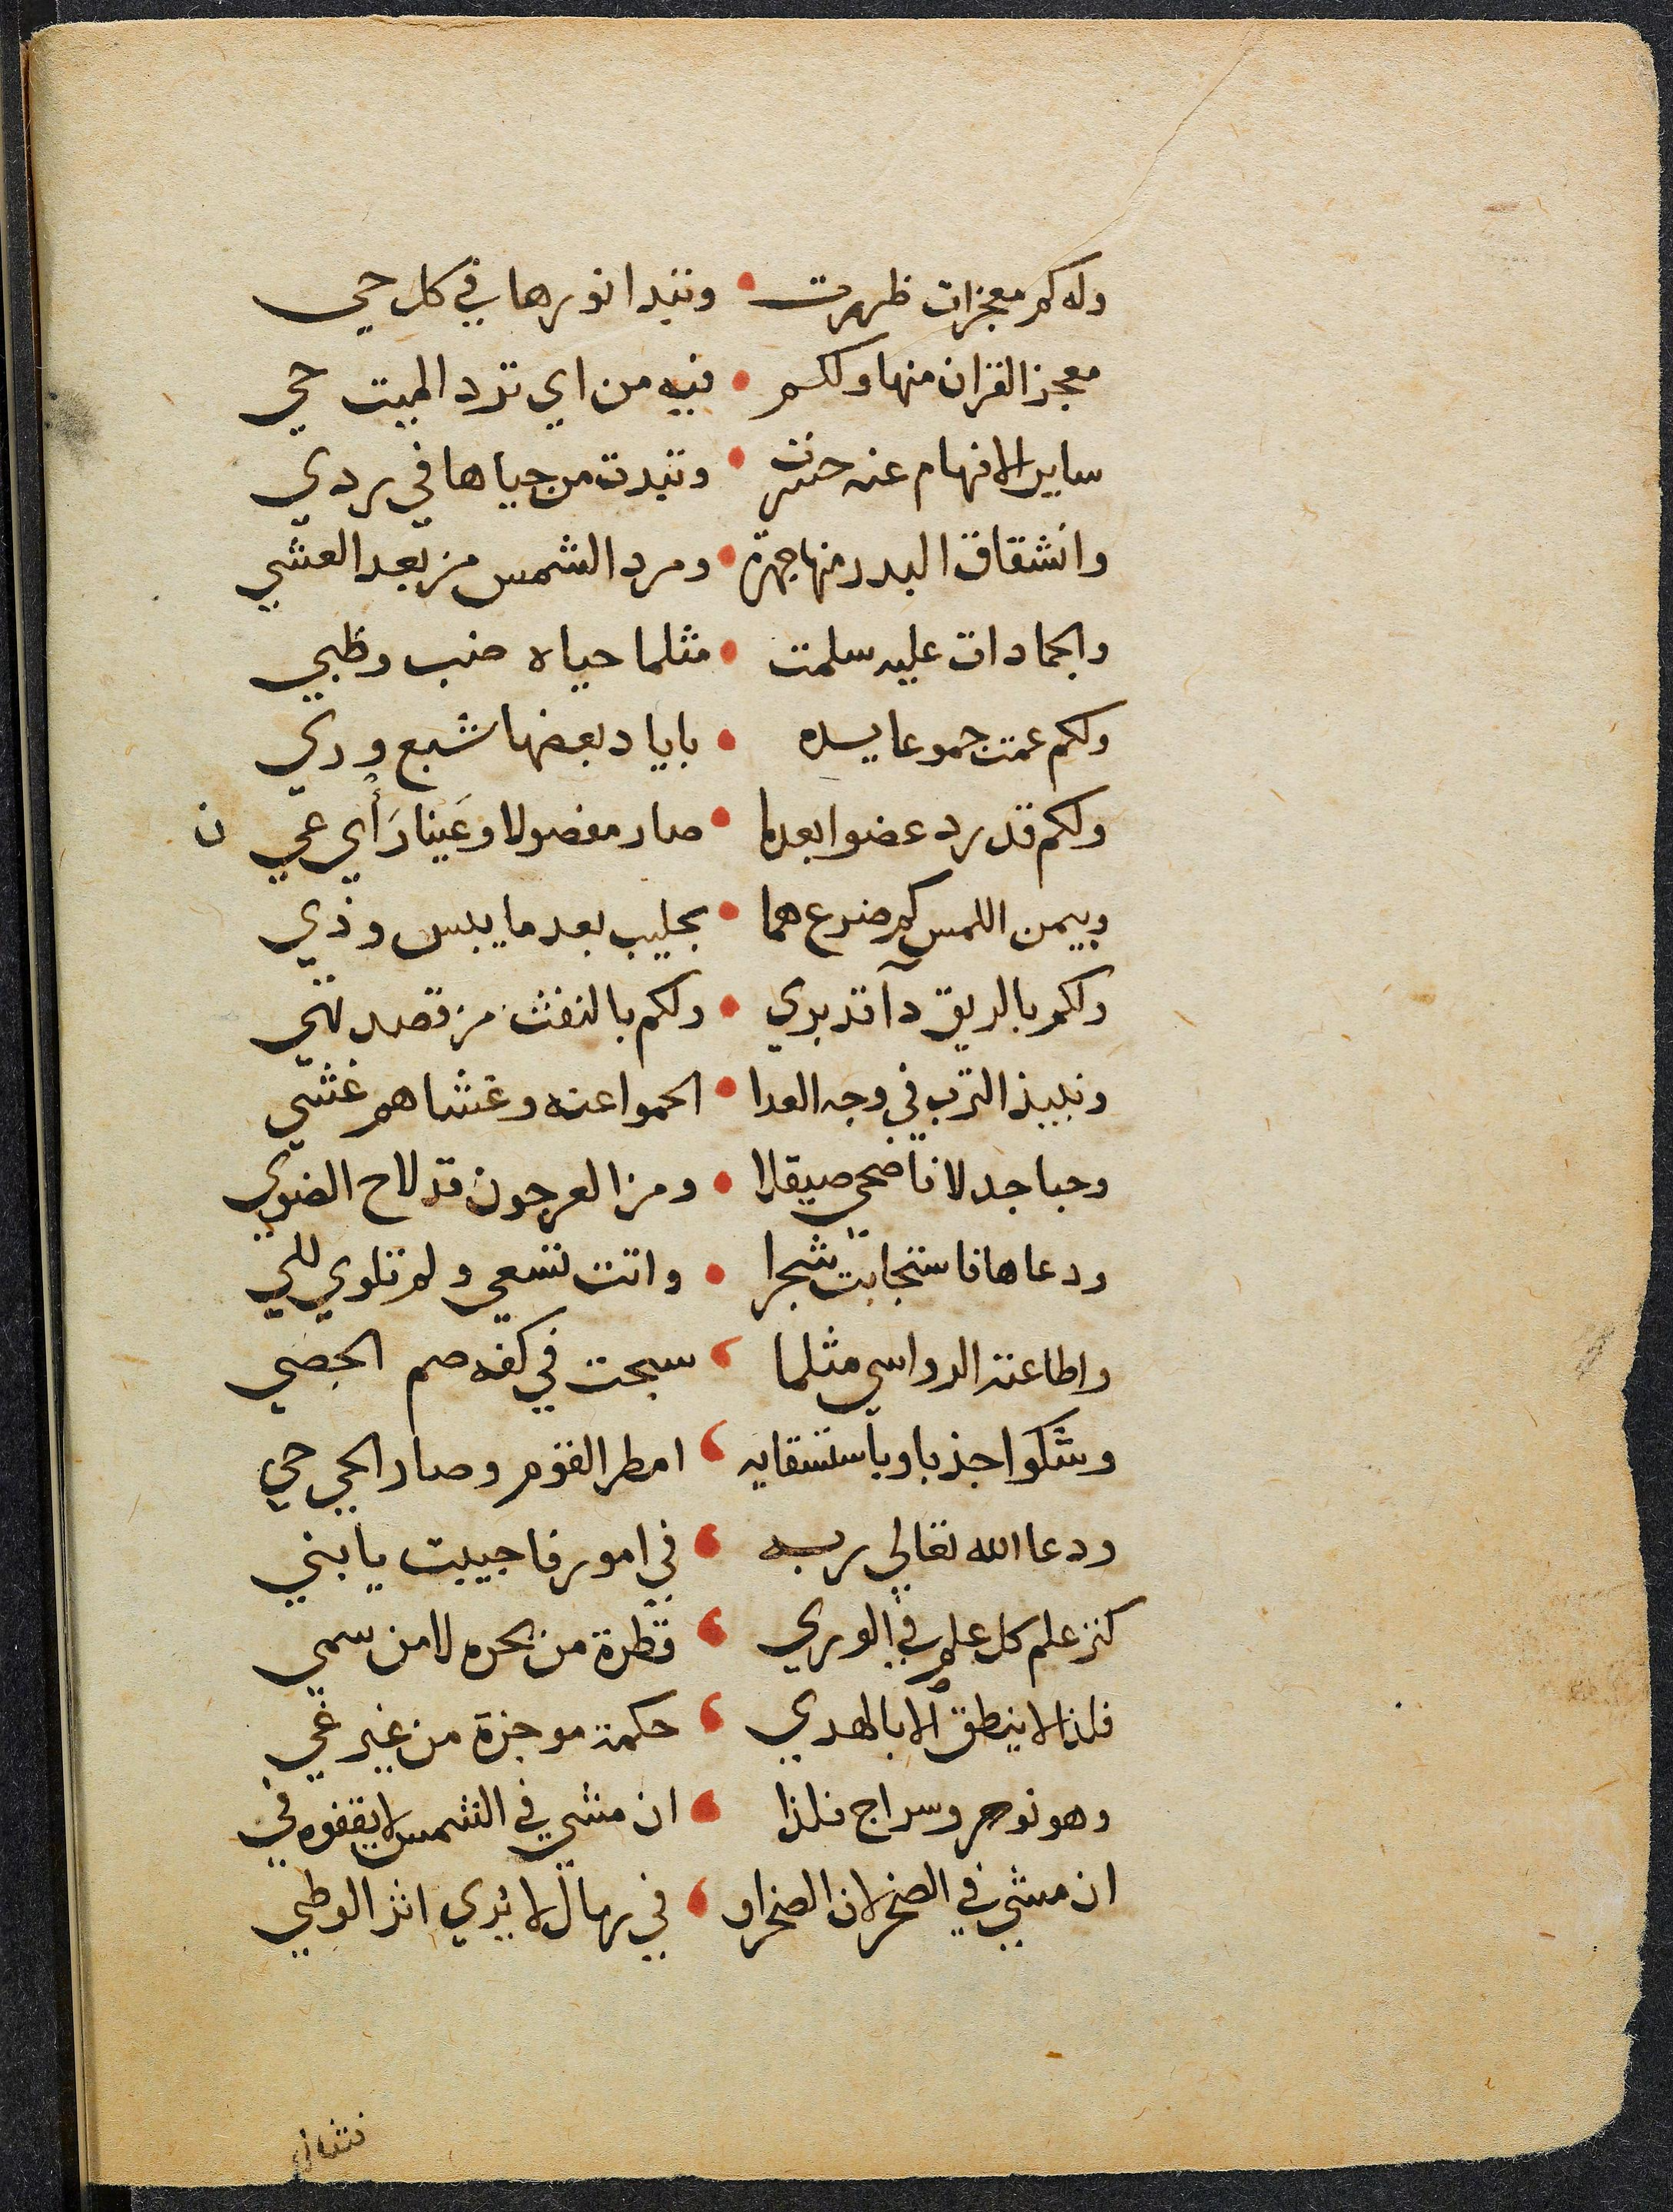 وله كم معجزات ظهرت • وتبدا نورها في كل حي
معجز القران منها ولكم • فيه من اي ترد الميت حي
ساير الافهام عنه حسرت • وتبدت من حياها في ردي
وانشقاق البدر منها جهرة • ورد الشمس من بعد العشي
والجمادات عليه سلمت • مثلما حياه ضب وظبي
ولكم عمت جموعا يده • باياد بعضها شبع وري
ولكم قد رد عضوا بعدما • صار مفصولا وعَينا رَأي عمي ن
وبيمن اللمس كم ضرع هما • بحليب بعد ما يبس وذي
ولكم بالريق دآ قد بري • ولكم بالنفث من قصد تهي
ونبيذ الترب في وجه العدا • الحموا عنه وغشاهم غشي
وحبا جدلا فاضحي صيقلا • ومن العرجون قد لاح الضوي
ودعاها فاستجابت شجرا • واتت تسعي ولم تلوي للي
واطاعته الرواسي مثلما ، سبحت في كفه صم الحصي
وشكوا جذبا وباستسقايه ، امطر القوم وصار الحي حي
ودعا الله تعالي ربه ، في امور فاجيبت يا بني
كنز علم كل علم في الوري ، قطرة من بحره لا من سمي
فلذا لا ينطق الا بالهدي ، حكمة موجزة من غير غي
وهو نور وسراج فلذا ، ان مشي في الشمس لا يقفوه في
ان مشي في الصخر لان الصخر او ، في رمال لا يُري اثر الوطي